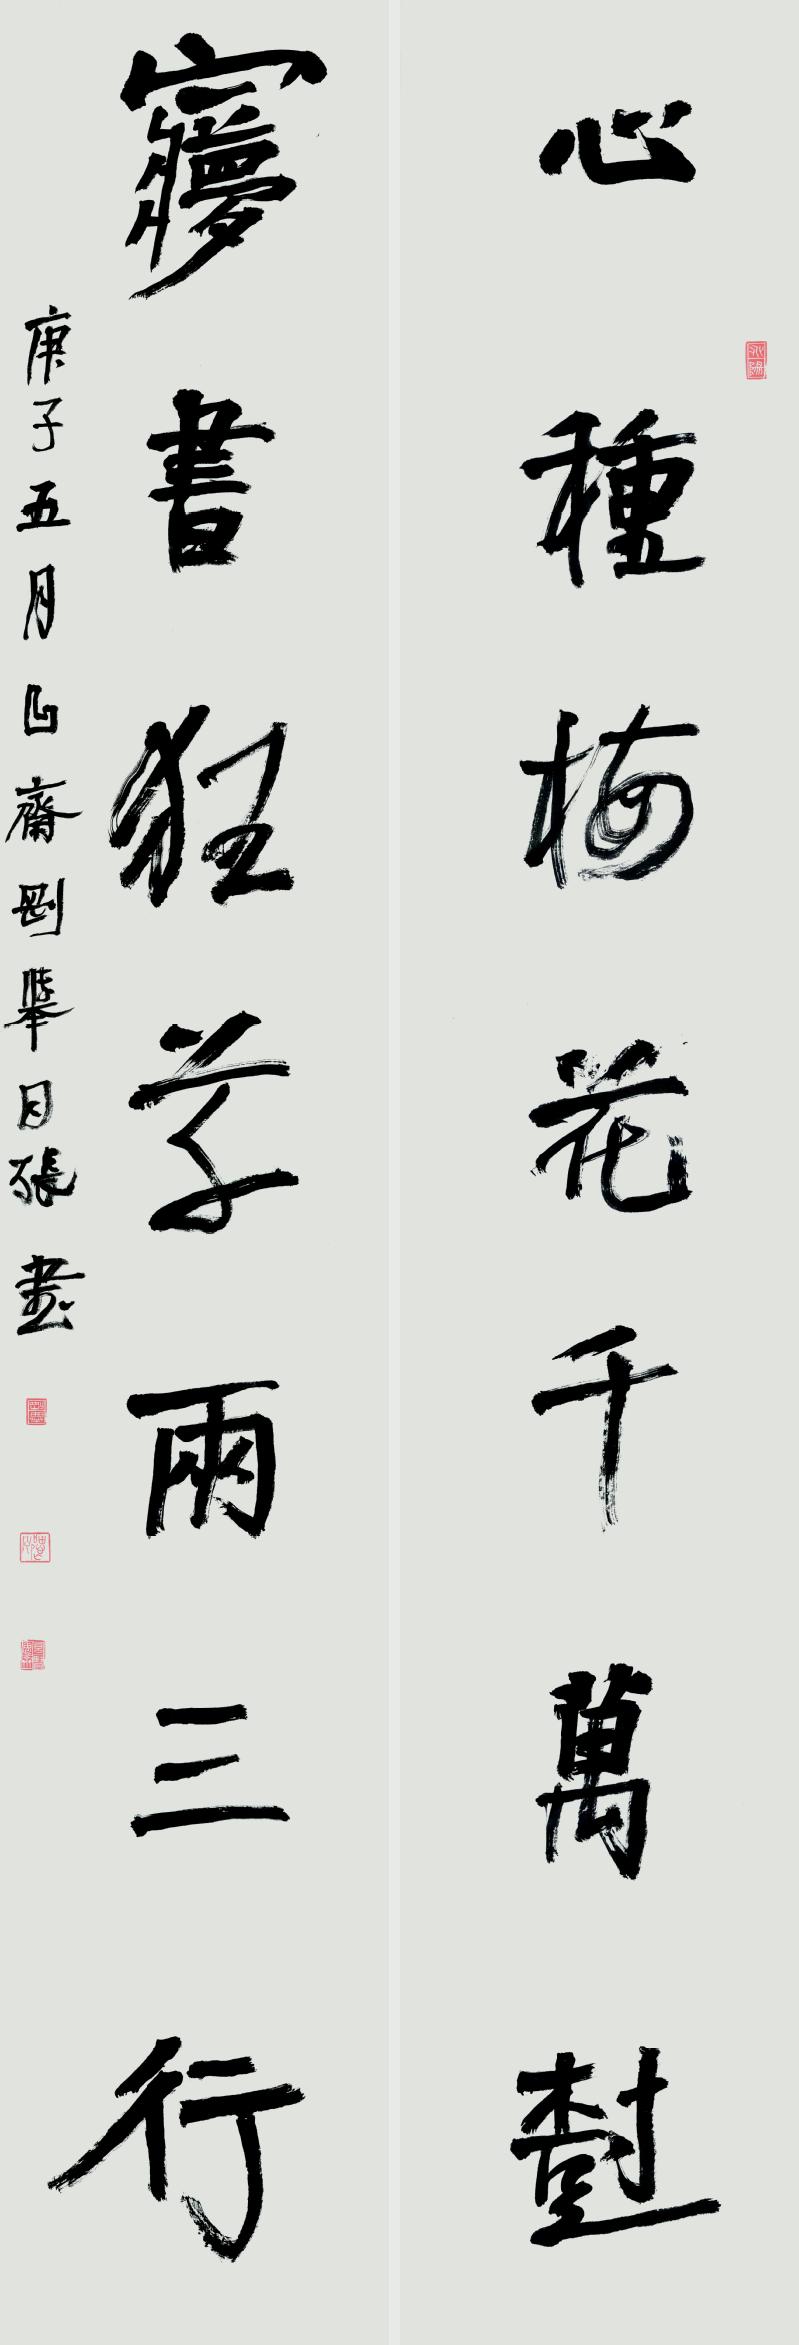 心種梅花千萬樹
寱書狂草兩三行
庚子五月凸齋剛舉目張畫